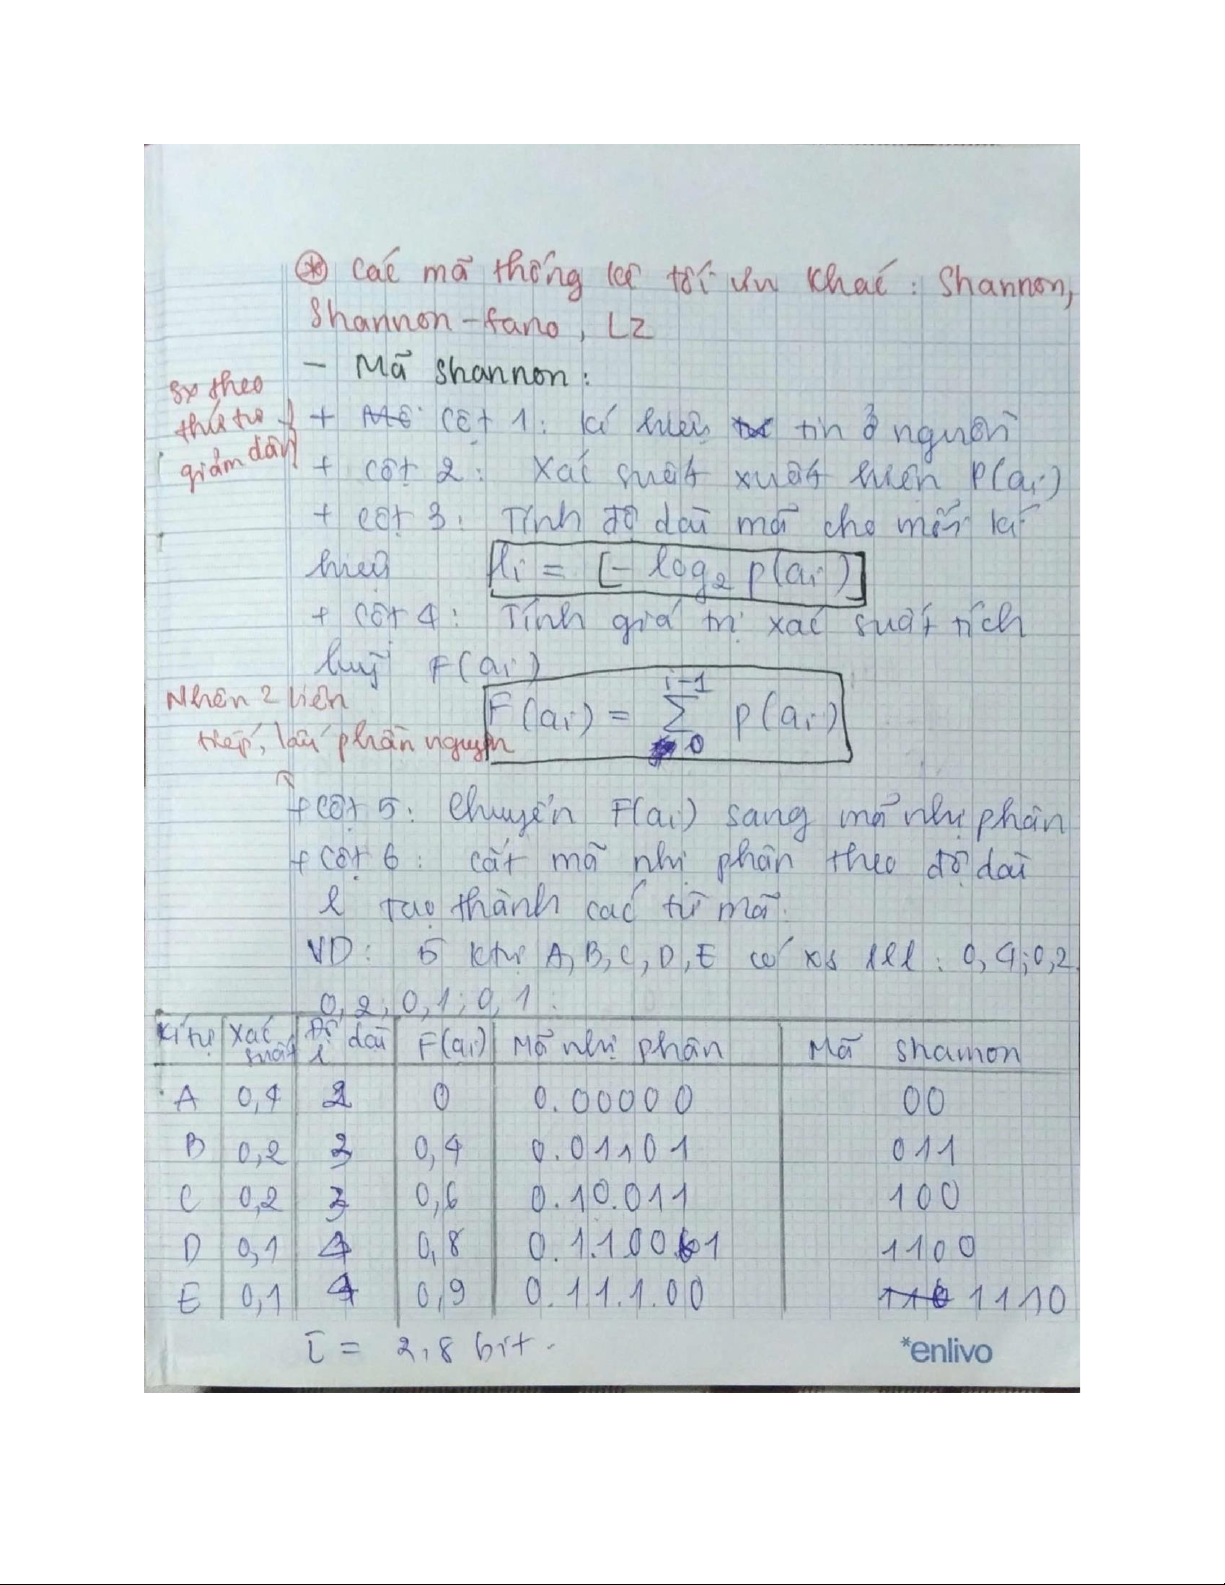 * Các mã thống kê tối ưu khác: Shannon,
Shannon-fano, LZ
- Mã Shannon:
sx theo
thứ tự
giảm dần
+ Cột 1: kí hiệu tin ở nguồn
+ Cột 2: Xác suất xuất hiện P(ai)
+ Cột 3: Tính độ dài mã cho mỗi kí
hiệu li = [- log2 p(ai)]
+ Cột 4: Tính giá trị xác suất tích
luỹ F(ai)
F(ai) = i-1 ∑ 0 p(ai)
Nhân 2 liên
tiếp, lấy phần nguyên
+ Cột 5: Chuyển F(ai) sang mã nhị phân
+ Cột 6: cắt mã nhị phân theo độ dài
l tạo thành các từ mã.
VD: 5 ktự A, B, C, D, E có xs lll: 0,4; 0,2
0,2; 0,1; 0,1:
Kí tự Xác suất Độ dài l F(ai) Mã nhị phân Mã shannon
A 0,4 2 0 0.00000 00
B 0,2 3 0,4 0.01101 011
C 0,2 3 0,6 0.10.011 100
D 0,1 4 0,8 0.1.1001 1100
E 0,1 4 0,9 0.11.1.00 1110
l = 2,8 bit.
*enlivo